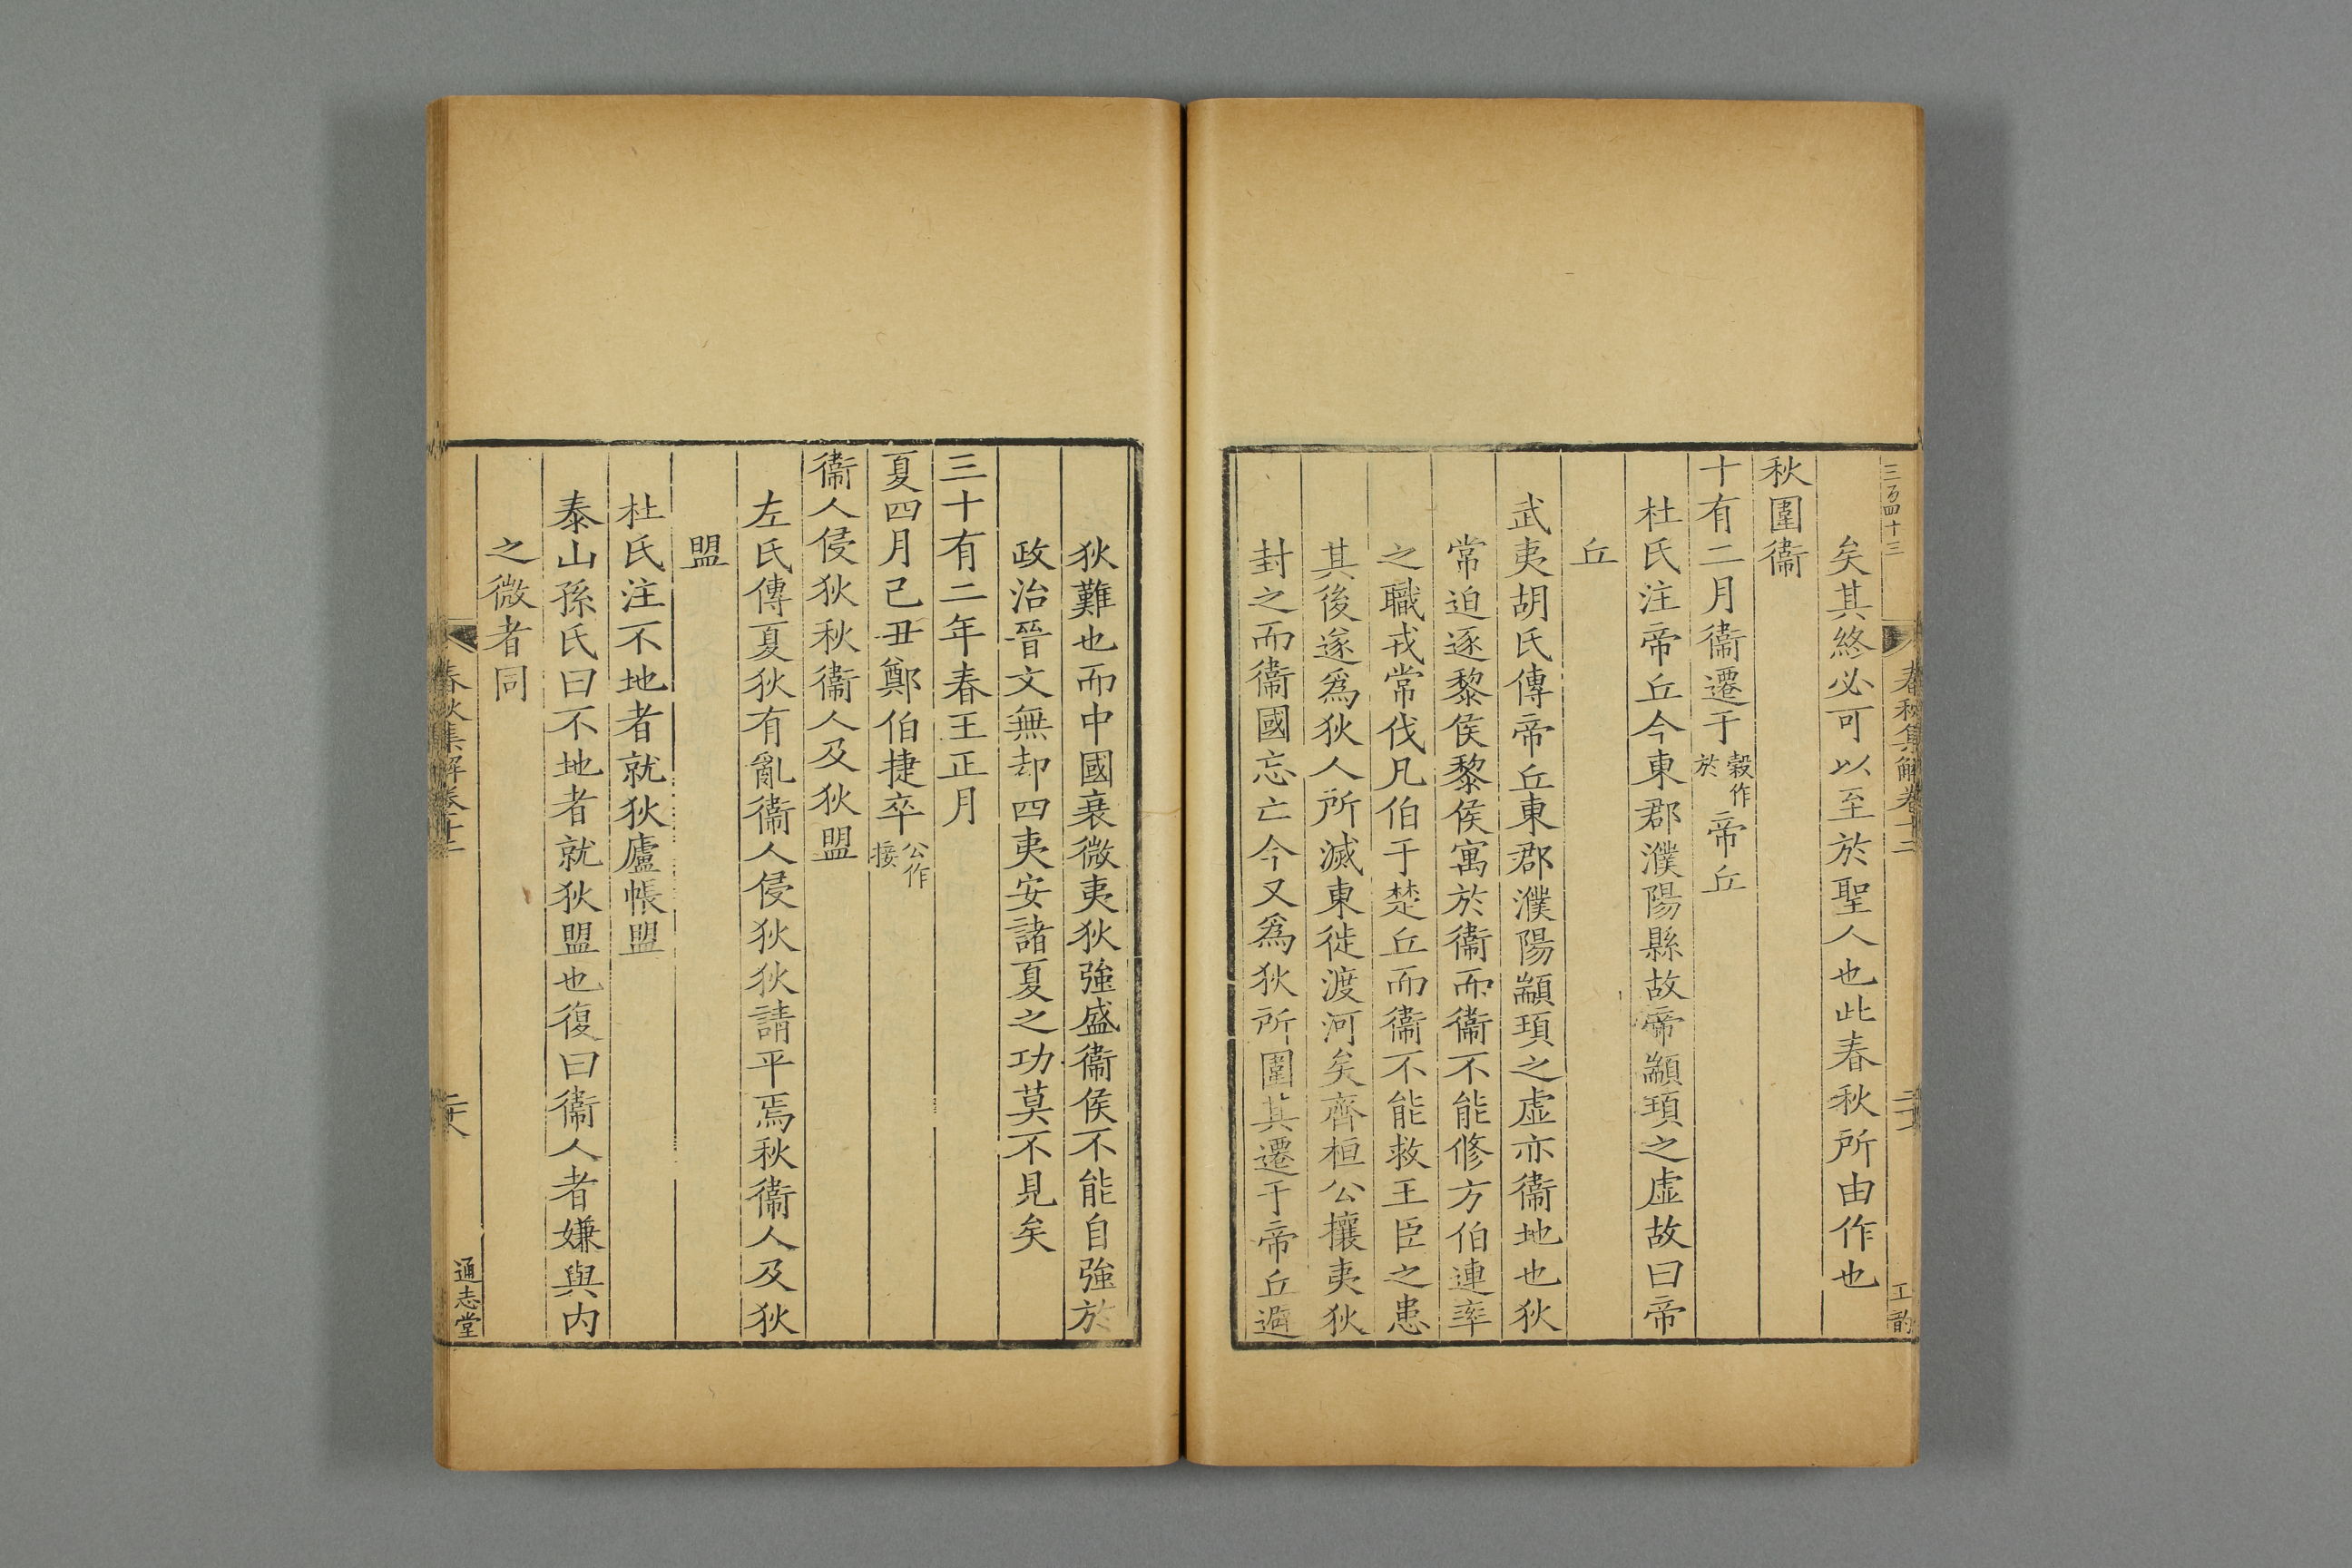 三百四十三
春秋集解卷十三
矣其終必可以至於聖人也此春秋所由作也
秋圍衞
十有二月衞遷于穀作於帝丘
杜氏注帝丘今東郡濮陽縣故帝顓頊之虛故曰帝
丘
武夷胡氏傳帝丘東郡濮陽顓頊之虛亦衞地也狄
常迫逐黎侯黎侯寓於衞而衞不能修方伯連率
之職戎常伐凡伯于楚丘而衞不能救王臣之患
其後遂爲狄人所滅東徙渡河矣齊桓公攘夷狄
封之而衞國忘亡今又爲狄所圍其遷于帝丘避
狄難也而中國衰微夷狄強盛衞侯不能自強於
政治晉文無却四夷安諸夏之功莫不見矣
三十有二年春王正月
夏四月己丑鄭伯捷卒公作接
衞人侵狄秋衞人及狄盟
左氏傳夏狄有亂衞人侵狄狄請平焉秋衞人及狄
盟
杜氏注不地者就狄廬帳盟
泰山孫氏曰不地者就狄盟也復曰衞人者嫌與内
之微者同
春秋集解卷十三
通志堂